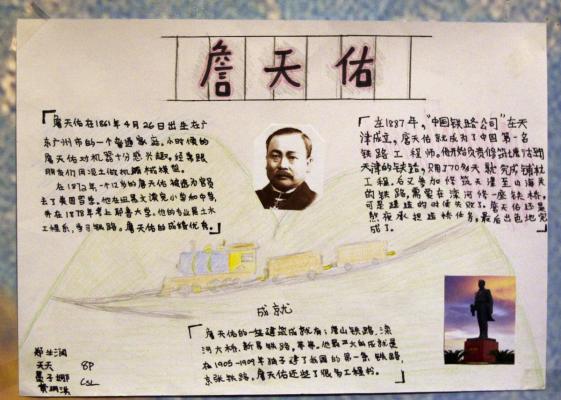 詹天佑
詹天佑在1861年4月26日出生在广
东广州市的一个普通家庭。小时候的
詹天佑对机器十分感兴趣。经常跟
朋友们用泥土做机器模型。
在1872年,一个12岁的詹天佑被选为官员
去了美国留学。他在
并在1878年考上耶鲁大学。他的专业是土木
工程系,专习铁路。詹天佑的成绩优秀。
在1887年,“中国铁路公司”在天
津成立。詹天佑就成为了中国第一名
铁路工程师。他开始负责修筑塘沽到
天津的铁路。只用70多天就完成铺轨
工程。后又参加修筑天津至山海关
的铁路,需要在滦河修一座铁桥,
可是建造的时候失败了。詹天佑还是
熬夜承担造桥任务,最后出色地完
成了。
成就
詹天佑的一些建筑成就有:唐山铁路、滦
河大桥、新易铁路,等等。他最大的成就是
在1905-1909年
京张铁路。詹天佑还
天天
8P
CSL